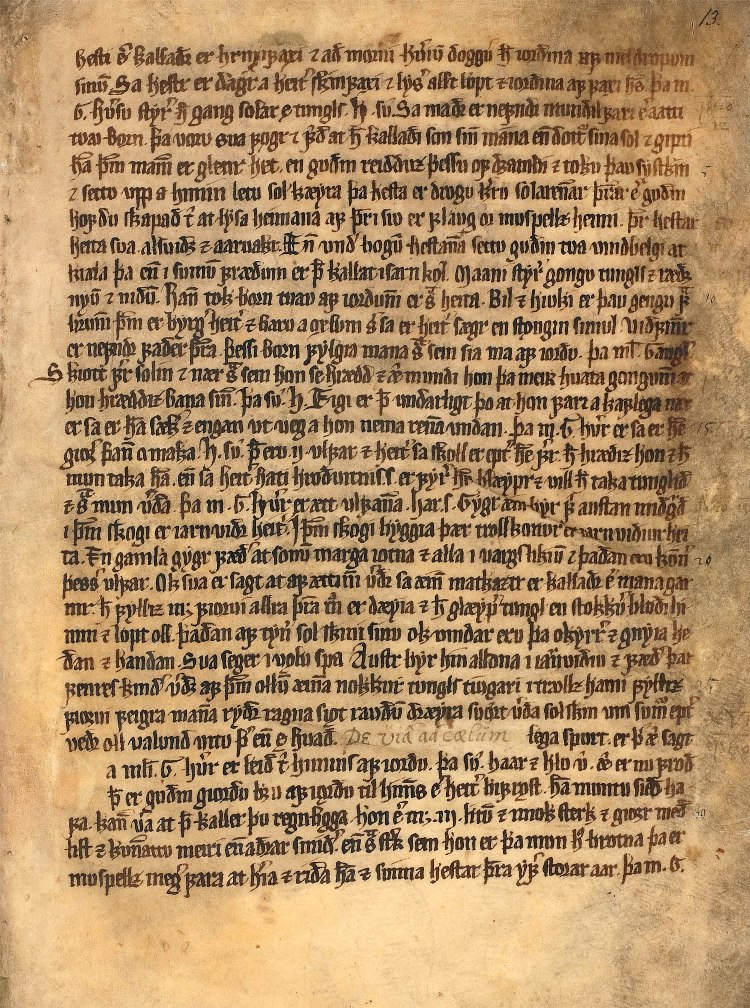 13.
hesti er kallaðr er hrimfaxi ⁊ að morni hveriū doggv̄ h̄ iordina af meldropum
sinū. Sa hestr er dagr a heit̄ skinfaxi ⁊ lys̄ allt lopt ⁊ iordina af faxi hs̄. þa m̄.
G. hv̄su styr̄ h̄ gang solar ⁊ tungls. H. sv̄. Sa madr er nefndr mundilfari er atti
tvau born. þau voru sva fogr ⁊ frid at h̄ kallaði son sin mána en dott̄ sina sol ⁊ gipti
hā þm̄ mani er glenr het. en gudin reidduz þessu ofdrambi ⁊ toku þau systkin
⁊ settu upp a himin letu sol kæyra þa hesta er drogu kerru solarennar þr̄ar er gudin
hofdu skapad t̄ at lysa heimana af þri siu er flaug or muspellz heimi. þr̄ hestar
heita sva. alsvidr ⁊ aarvakr. En und̄ bogū hestāna settu gudin tva vindbelgi at
kiæla þa en̄ i sumū frædum er þ̄ kallat isarnkol. Maani styr̄ gongu tungls ⁊ ræðr
nyiū ⁊ nidū. Hann tok born tvav af iordunni er sva heita. Bil ⁊ hiuki er þau gengu fra
brunni þm̄ er byrḡ heit̄ ⁊ baru a oxlum ser sa er heit̄ sægr en stongin simul. Vidfinnr
er nefndr fader þra. þessi born fylgia mana sva sem sia ma af iordu. þa ml̄. Gangl̄.
Skiott fr̄ solin ⁊ nær sva sem hon se hrædd ⁊ ei mundi hon þa meir hvata gongunni at
hon hræddiz bana sin̄. þa sv̄. H. Eigi er þ̄ undarligt þo at hon fari akaflega nær
er sa er hā sæk̄ ⁊ engan ut veg a hon nema reña undan. þa m̄. G. hv̄r er sa er hē
gior̄ þañ omaka. H. sv̄. þeir eru .ii. ulfar ⁊ heit̄ sa skoll er ept̄ hē fr̄. h̄ hrædiz hon ⁊ h̄
mun taka hā. en̄ sa heit̄ hati hrodvitnis.s. er fyr̄ hē hlæypr ⁊ vill h̄ taka tunglid
⁊ sva mun v̄da. þa m̄. G. hv̄r er ætt ulfāna. Har.s. Gygr ein byr f̄ austan midgard
i þm̄ skogi er iarnvidr heit̄. I þm̄ skogi byggia þær trollkonur er iarnvidiur hei
ta. En gamla gygr fæd̄ at sonū marga iotna ⁊ alla i vargs likiū ⁊ þadan eru kom̄
þess̄ ulfar. Ok sva er sagt at af ættinni v̄dr sa æinn matkaztr er kalladr er managar
mr. h̄ fylliz m; fiorvi allra þra m̄ er dæyia ⁊ h̄ glæyp̄ tungl en stokkv̄ blodi hi
min ⁊ lopt oll. þadan af tyn̄ sol skini sinu ok vindar eru þa okyrr̄ ⁊ gnyia he
dan ⁊ handan. Sva seger i volu spa. Austr byr hin alldna i iarnvidiu ⁊ fæd̄ þar
fenres kind̄ v̄dr af þm̄ ollū æinna nokkur tungls tiugari i trollz hami fylliz
fiorvi feigra manna rydr ragna siot raudum dræyra svort v̄da solskin um sumr ept̄
vedr oll valund vitu þ̄ enn e hvad. De via ad coelum lega spurt. er þ̄ ei sagt
a mli. G. hv̄r er leid t̄ himins af iordu. þa sv̄. haar ⁊ hlo v̄. ei er nu frod
þ̄ er gudin giordu bru af iordu til himins ⁊ heit̄ bifrost. hā muntu sied ha
fa. kañ v̄a at þ̄ kaller þu regnboga. hon er m; .iii. litū ⁊ miok sterk ⁊ gior med̄
list ⁊ kunnattu meiri en adrar smid̄. en̄ sva sterk sem hon er þa mun h̄ brotna þa er
muspellz meḡ fara at heria ⁊ rida hā ⁊ svima hestar þra yf̄ storar aar. þa m̄. G.